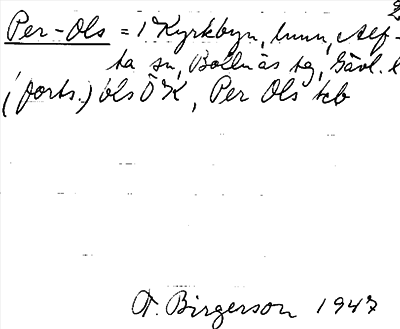 2
Per-Ols = i Kyrkbyn, hmn, Alf-
ta sn, Bollnäs tg, Gävl. l
(forts.) bls ÖK, Per Ols tcb
A. Birgerson 1947